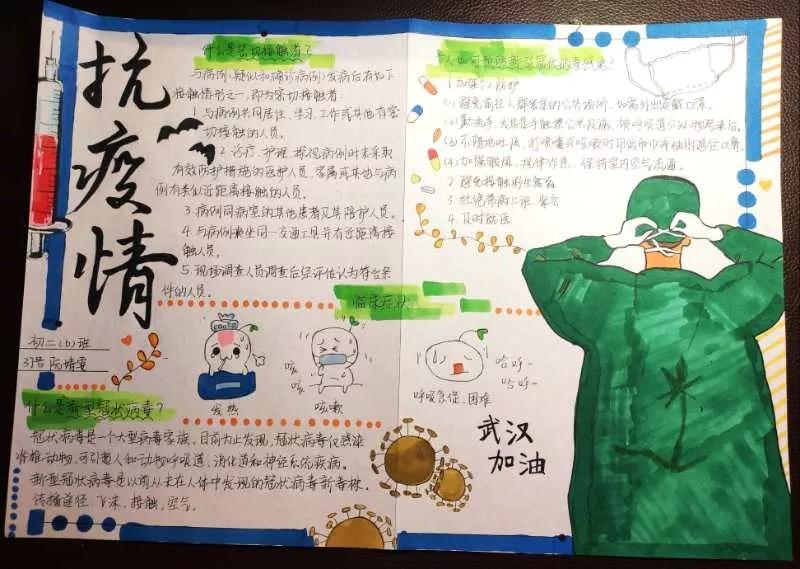 抗疫情
什么是密切接触者?
与病例(疑似和确诊病例)发病后有如下
接触情形之一,即为密切接触者:
1.与病例共同居住、学习、工作或其他有密
切接触的人员。
2.诊疗、护理、探视病例时未采取
有效防护措施的医护人员、家属或其他与病
例有类似近距离接触的人员。
3.病例同病室的其他患者及其陪护人员。
4.与病例乘坐同一交通工具并有近距离接
触人员。
5.现场调查人员调查后经评估认为符合条
件的人员。
个人如何预防新型冠状病毒
1.加强个人防护
(1)避免前往人群密集的公共场所,如需外出应戴口罩。
(2)勤洗手,尤其是手触摸公共设施、被呼吸道分泌物污染后。
(3)不随地吐痰,打喷嚏或咳嗽时用纸巾
(4)加强锻炼,规律作息,保持室内空气流通。
2.避免接触野生禽畜
3.杜绝带病上班、聚会
4.及时就医
临床症状
初二(6)班
发热
咳
咳
咳嗽
哈呼~
哈呼~
呼吸急促、困难
什么是新型冠状病毒?
冠状病毒是一个大型病毒家族。目前为止发现,冠状病毒仅感染
脊椎动物,可引起人和动物呼吸道、消化道和神经系统疾病。
新型冠状病毒是以前从未在人体中发现的冠状病毒新毒株。
传播途径:飞沫、接触、空气。
武汉
加油